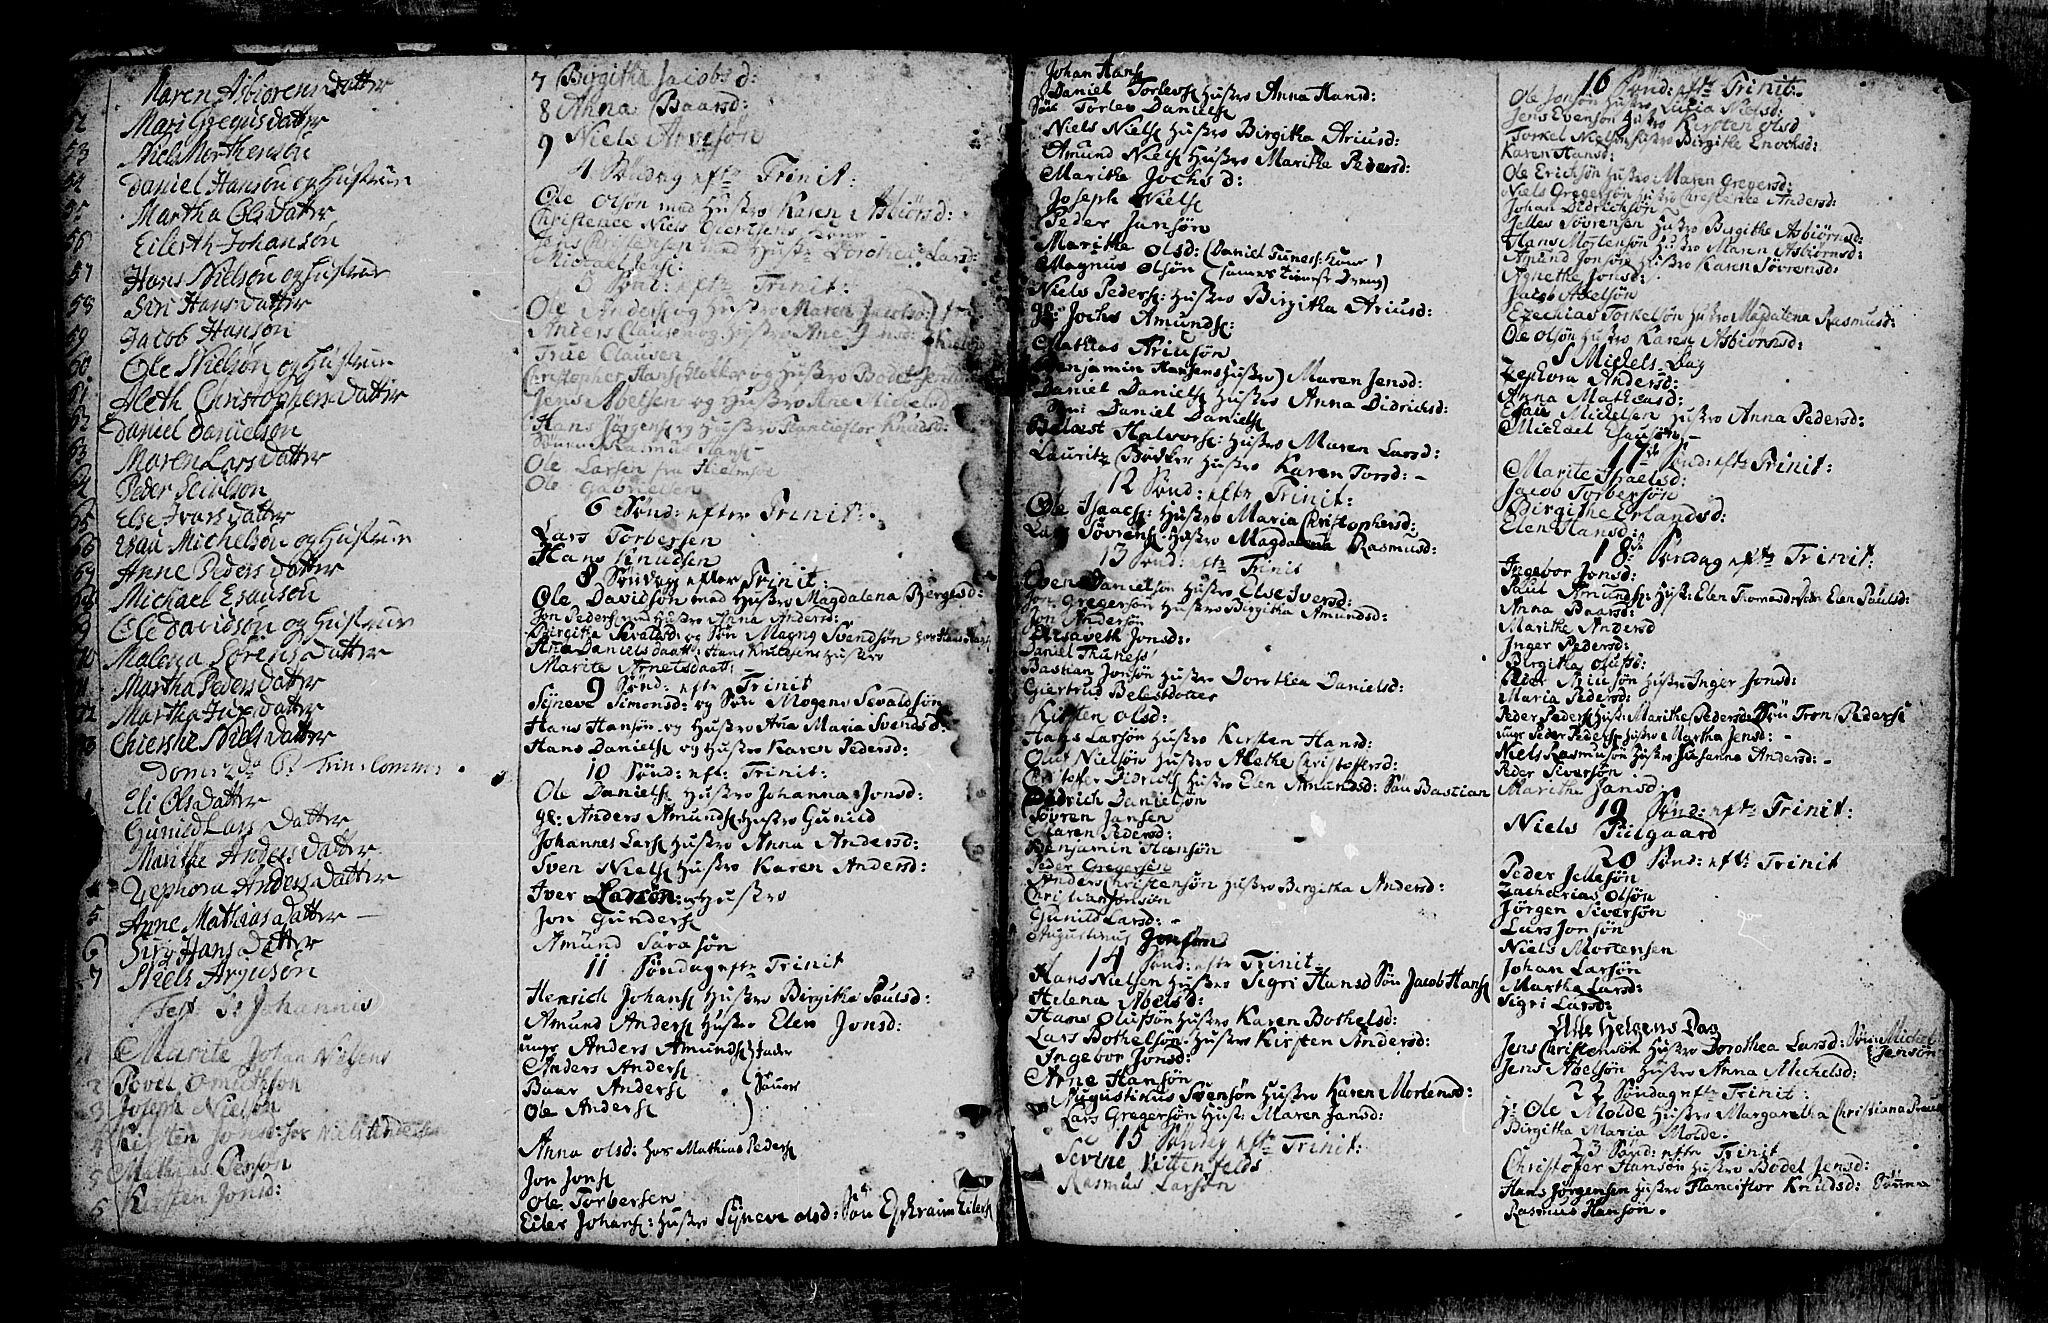 Maren Asbiørens datter
52 Mari Gregusdatter
53 Niels Morthensøn
54 Daniel Hansøn og Hustrue
55 Martha Ols datter
56 Eilerth Johansøn
57 Hans Nielsøn og Hustrue
58 Siri Hans datter
59 Jacob Hansøn
60 Ole Nielsøn og Hustrue
61 Aleth Christophers datter
62 Daniel Danielsøn
63 Maren Lars datter
Peder
65 Else Ivars datter
66 Esau Michelsøn og Hustrue
67 Anne Peders datter
68 Michael Esausøn
69 Ole Davidsøn og Hustrue
70 Malena Sørens datter
71 Martha Peders datter
72 Martha datter
73 Chiersthe Niels datter
Dom: 2da p: Trin: Comm:
1 Eli Ols datter
2 Gunild Lars datter
3 Marithe Anders datter
4 Zephora Anders datter
5 Anne Mathias datter —
6 Siry Hans datter
7 Niels Arfuisøn
Fest: St Johannis
1 Marite Johan Nielsens
2 Povel
3 Joseph Nielsøn
4 Kirsten Jonsd: hos Niels Andersen
5 Mathias
6 Kirsten Jonsd:
7 Birgitha Jacobsd:
8 Anna Baarsd:
9 Niels
4 Søndag eftr Trinit:
Ole Olsøn med Hustro Karen Asbiörsd:
Christence Niels
Jens Christensen med Hustr: Dorothea Larsd:
Michael Jens:
5 Sönd: eftr Trinit:
Ole Andersen og Hustro Maren Jacobsd:
Anders Clausen og Hustro Ane Jensd:
True Clausen
Christopher Hansen og Hustro Bodel Jensd
Jens Abelsen og Hustro Ane Michelsd
Hans Jörgensen og Hustro Knudsd:
Rasmus Hans:
Ole Larsen fra Hielmsøe
Ole Gabrielsen
6 Sönd: efter Trinit:
Lars Torbersen
Hans Knudsen
8 Söndag efter Trinit:
Ole Davidsön med Hustro Magdalena Børgesd:
Jon Pedersen med Hustro Anna Anders:
Birgitha Sevaldsd: og Søn Magny Svendsøn
Ana Daniels daatt: Hans Knutsens Hustro
Marite Arnetsdaatt: —
9 Sönd: eftr Trinit
Syneve Simonsd: og Søn Mogens Sevaldsøn
Hans Hansøn og Hustro Ana Maria Svendsd:
Hans Daniels: og Hustro Karen Pedersd:
10 Sönd: eft: Trinit:
Ole Daniels: Hustro Johanna Jonsd:
gl: Anders Amunds: Hustro Gunild
Johannes Lars: Hustro Anna Andersd:
Sven Niels: Hustro Karen Andersd:
Iver Larsön: og Hustro
Jon Gunders:
Amund Sarasøn
11 Söndag eftr Trinit
Henrich Johans: Hustro Birgitha Paulsd:
Amund Anders: Hustro Elen Jonsd:
ungr Anders Amunds: fader
Anders Anders:
Baar Anders: Sönner
Ole Anders:
Anna Olsd: hos Mathias Peders:
Jon Jons:
Ole Torbersen
Eiler Johans: Hustro Syneve Olsd: Søn Ephraim Eilers:
Johan Hans:
Daniel Torlevs: Hustro Anna Hansd:
Sön Torlev Daniels:
Niels Niels: Hustro Birgitha Ariusd:
Amund Niels: Hustro Maritha Pedersd:
Maritha Jochs d:
Joseph Niels:
Peder Jansøn
Marithe Olsd: (Daniel
Magnus Olsøn
Niels Peders: Hustro Birgitha Ariusd:
gl: Jochs Amunds:
Mathias Ariusøn
Benjamin Hansens Hustro) Maren Jensd:
Daniel Daniels: Hustro Anna Didrichsd:
Søn: Daniel Daniels:
Halvors: Hustro Maren Larsd:
Lauritz Bødker Hustro Karen Torsd: —
12 Sönd: eftr Trinit:
Ole Isaacs: Hustro Maria Christophersd:
Lars Søvrens: Hustro Magdalena Rasmusd:
13 Sönd: eftr Trinit
Even Danielsøn Hustro Else Iversd:
Jon Gregersøn Hustro Birgitha Amundsd:
Jon Andersøn
Elisaveth Jonsd:
Daniel Thuness:
Bastian Jonsøn Hustro Dorothea Danielsd:
Giertrud
Kirsten Olsd:
Hans Larsön Hustro Kirsten Hansd:
Oluf Nielsøn Hustro Alethe Christofersd:
Cristofer Didrichs: Hustro Elen Amundsd: Søn Bastian
Didrich Danielsøn
Søvren Jansen
Maren Pedersd:
Benjamin Hansøn
Peder Gregersen
Anders Christensøn Hustro Birgitha Andersd:
Christian
Gunild Larsd: —
Augustinus Jonsøn
14 Sönd: eftr Trinit
Hans Nielsen Hustro Sigri Hansd Søn Jacob Hans:
Helena Abelsd:
Hans Olufsøn Hustro Karen Bothelsd:
Lars Bothelsøn: Hustro Kirsten Andersd:
Ingebor Jonsd:
Arne Hansøn
Augustinus Svensøn Hustro Karen Mortensd:
Lars Gregersøn Hust: Maren Jansd:
15 Söndag eftr Trinit:
Sevine
Rasmus Larsøn
16 Sönd: eftr Trinit.
Ole Jonsøn Hustro Lucia Nielsd:
Jens Evensøn Hustro Kirsten Olsd
Torkel Nielsøn Hustro Birgithe Enochsd:
Karen Hansd:
Ole Erichsøn Hustro Maren Gregersd:
Niels Gregersøn Hustro Christenke Andersd:
Johan Didrichsøn
Jelles Søvrensen Hustro Birgithe Asbiørnsd:
Hans Mortensøn Hustro Maren Asbiørnsd:
Amund Jonsøn Hustro Karen Søvrensd:
Agnethe Jonsd:
Jacob Axelsøn
Ezechias Torkelsøn Hustro Magdalena Rasmusd:
Ole Olsøn Hustro Karen Asbiørnsd:
S Michels Dag
Zephora Andersd:
Anna Matheasd:
Esau Michelsen Hustro Anna Pedersd:
Michael Esausøn —
17de Sönd: eftr Trinit:
Marite
Jacob Torbersøn
Birgithe Erlandsd:
Elen Hansd:
18de Söndag eftr Trinit:
Ingebor Jonsd:
Paul Amunds: Hust: Elen Elen Paulsd:
Anna Baarsd:
Marithe Andersd
Inger Pedersd:
Birgitha
Peder Ariusøn Hustro Inger Jonsd:
Maria Pedersd:
Peder Peders: Hust: Marithe Pedersd: Søn Tron Peders:
ungr Peder Peders: Hustro Martha Jensd: —
Niels Rasmusøn Hustro Susanna Andersd: —
Peder Siversøn
Marithe Jansd:
19 Sönd: eftr Trinit:
Niels Pülgaard
20 Sönd: eft: Trinit
Peder Jellesøn
Zacharias Olsøn
Jørgen Siversøn
Lars Jonsøn
Niels Mortensen
Johan Larsøn
Martha Larsd:
Sigri Larsd:
Alle Helgens Dag
Jens Christensøn Hustro Dorothea Larsd: Søn Michel Jensøn
Jens Abelsøn Hustro Anna Michelsd:
22 Söndag eftr Trinit:
Ole Molde Hustro Margaretha Christiana
Birgitha Maria Molde:
23 Sönd: eftr Trinit
Christofer Hansøn Hustro Bodel Jensd:
Hans Jørgensen Hustro Knudsd:
Rasmus Hansøn.